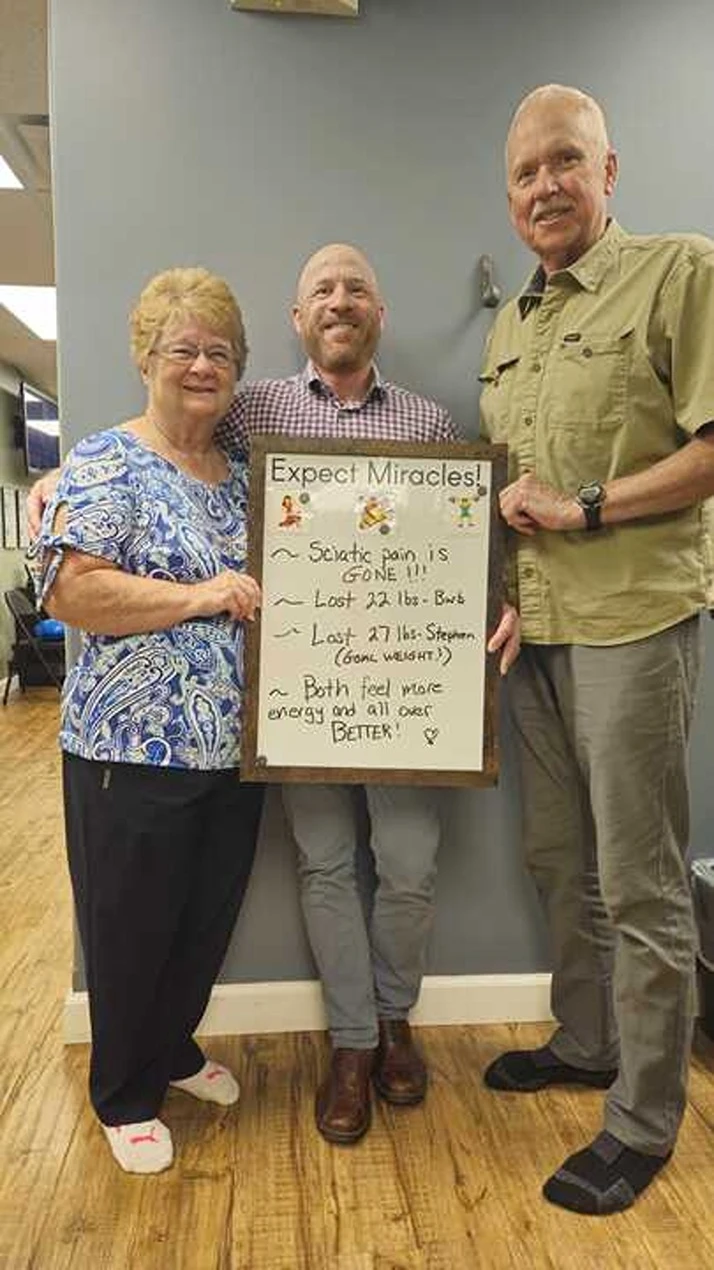 Expect Miracles!
~ Sciatic pain is
GONE!!!
~ Lost 22 lbs - Barb
~ Lost 27 lbs - Stephen
(GOAL WEIGHT!)
~ Both feel more
energy and all over
BETTER! ♡